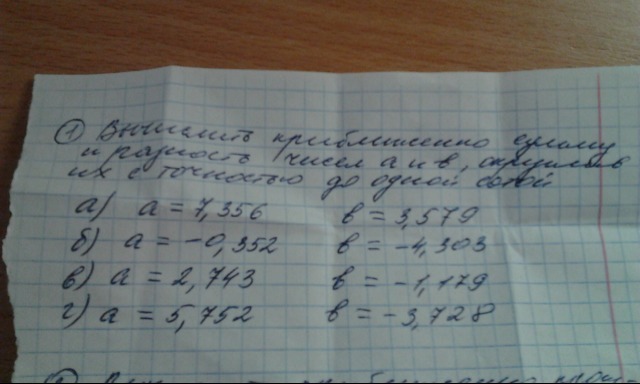 ① Вычислить приближенно сумму
и разность чисел a и b, округлив
их с точностью до одной сотой
а) a = 7,356 b = 3,579
б) a = -0,352 b = -4,303
в) a = 2,743 b = -1,179
г) a = 5,752 b = -3,728